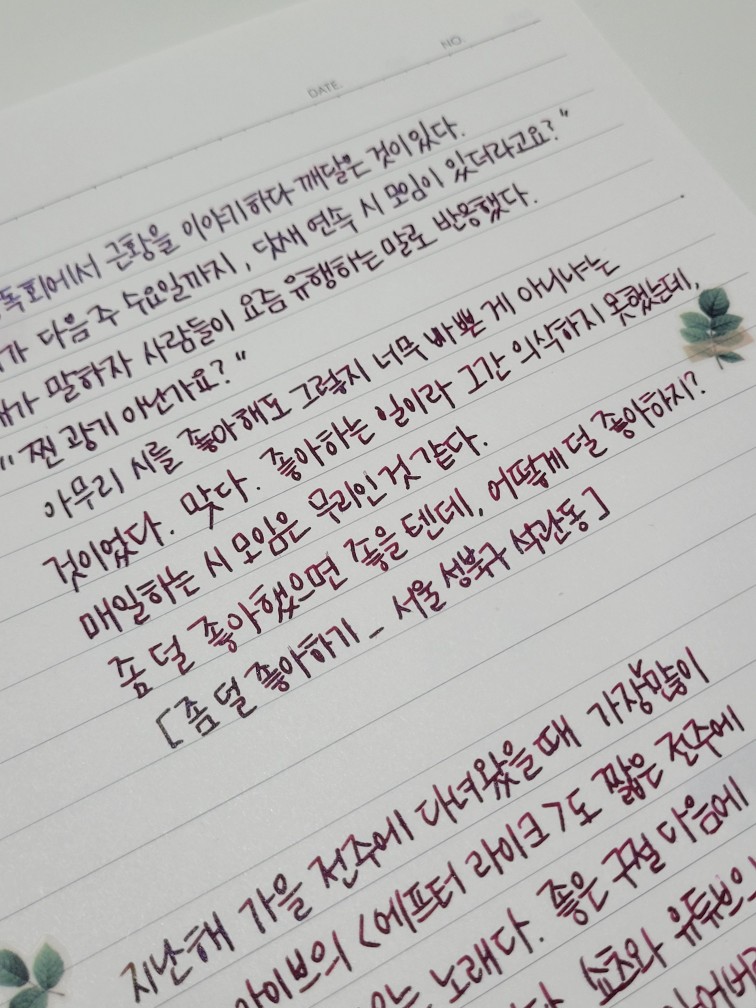 DATE. NO.
독회에서 근황을 이야기하다 깨달은 것이 있다.
가 다음 주 수요일까지, 닷새 연속 시 모임이 있더라고요?"
내가 말하자 사람들이 요즘 유행하는 말로 반응했다.
"찐 광기 아닌가요?"
아무리 시를 좋아해도 그렇지 너무 바쁜 게 아니냐는
것이었다. 맞다. 좋아하는 일이라 그간 의식하지 못했는데,
매일하는 시 모임은 무리인 것 같다.
좀 덜 좋아했으면 좋을 텐데, 어떻게 덜 좋아하지?
[좀 덜 좋아하기 - 서울 성북구 석관동]
지난해 가을 전주에 다녀왔을 때 가장 많이
아이브의 <애프터 라이크>도 짧은 전주에
노래다. 좋은 구절 다음에
쇼츠와 유튜브의